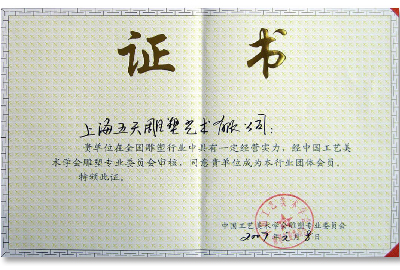 证书
上海五天雕塑艺术有限公司:
贵单位在全国雕塑行业中具有一定经营实力,经中国工艺美
术学会雕塑专业委员会审核,同意贵单位成为本行业团体会员,
特颁此证。
中国工艺美术学会雕塑专业委员会
2007年 月 8日